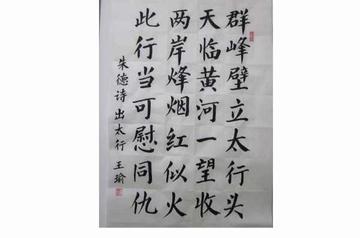 群峰壁立太行头
天临黄河一望收
两岸烽烟红似火
此行当可慰同仇
朱德诗 出太行 王瑜